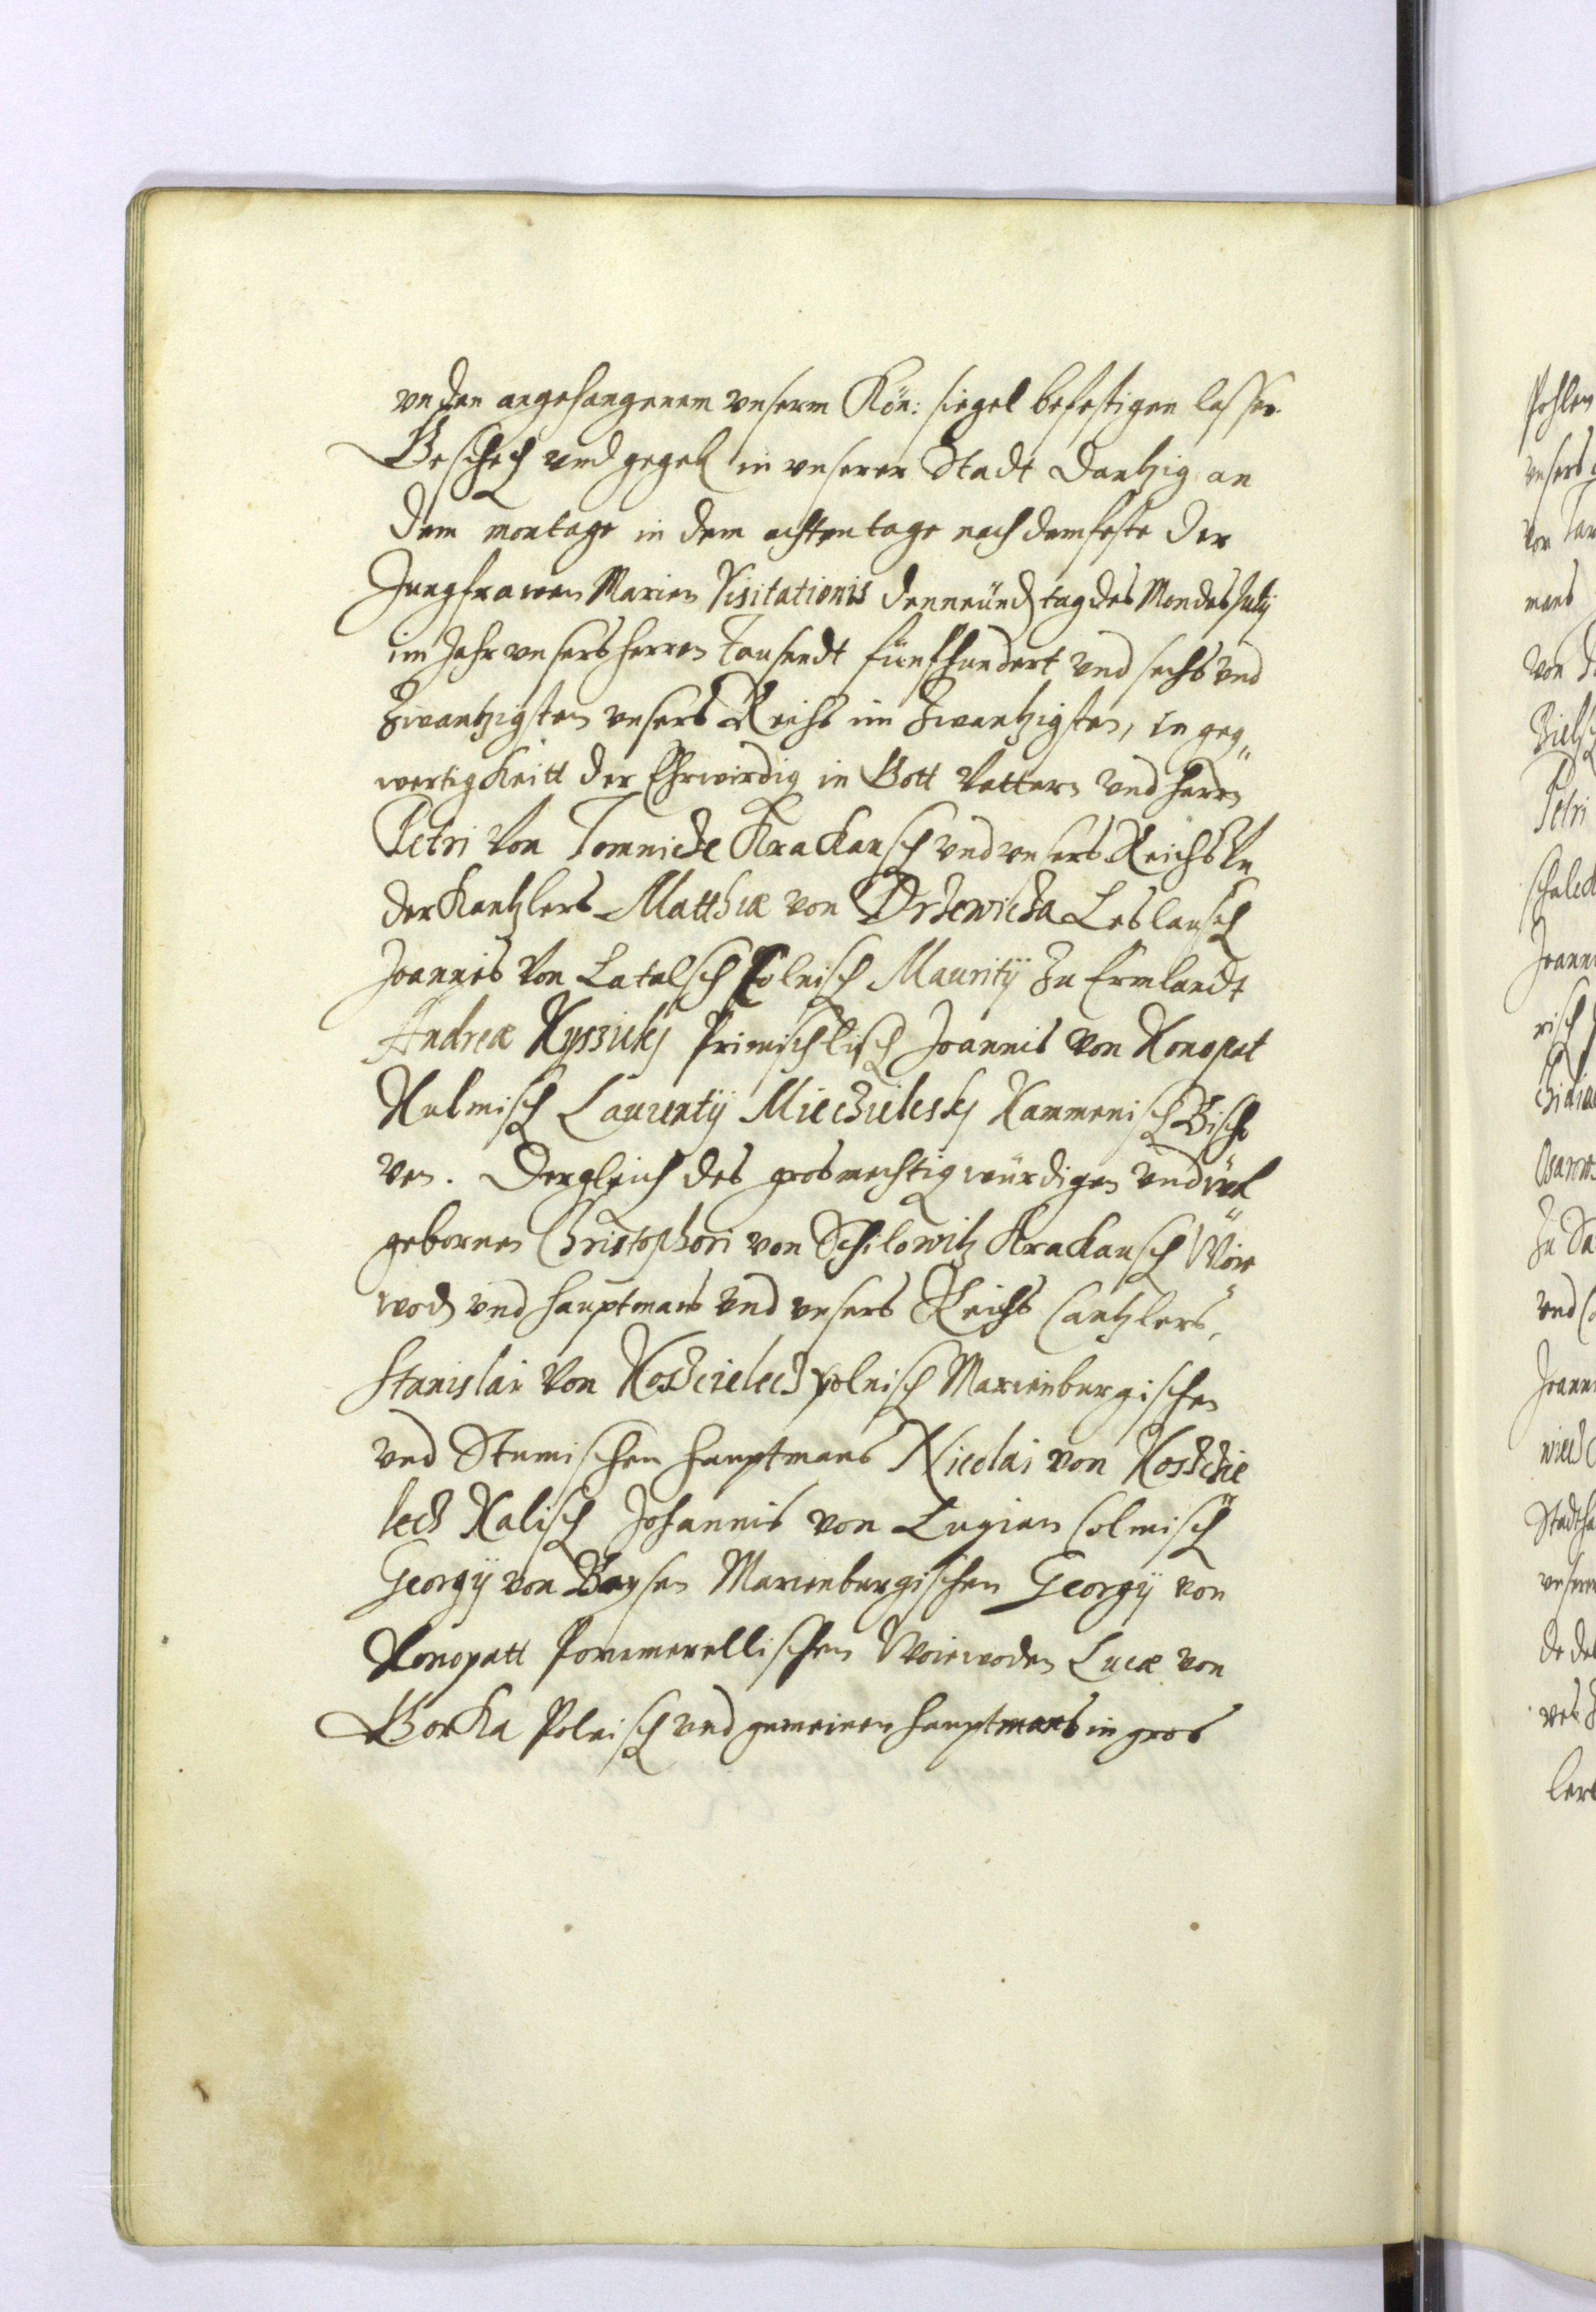 vnden angehangenem vnserm Kön: siegel befestigen lassen
Geschech und gegeb in vnserer Stadt Dantzig an
dem montage in dem achten tage nach dem feste der
Jungfrawen Marien Visitationis den neündt tag des Mondes July
im Jahr vnsers herren Tausendt fünfhundert vnd sechs vnd
Zwantzigsten vnsers Reichs im Zwantzigsten, in geg„
wertigkeitt der Ehrwirdig in Gott Vettern vnd herrn
Petri Von Tomnicke Krackausch vnd vnsers Reichs Vn
der Kantzlers Matthiæ von Drzewicza Leslausch
Joannes Von Latalsch Polnisch Mauritÿ Zu Ermlandt
Andreæ Kysziczkj Primischlisch Joannis von Konopat
Kulmisch Laurentÿ Miedzileskj Kammenisch Bischo
ven. Dergleich des grosmechtig würdigen vnd wol
gebornen Christophori von Schilowitz Krackausch Woie
wod vnd hauptmans vnd vnsers Reichs Cantzlers,
Stanislai Von Koszcielecz Polnisch Marienburgischen
vnd Stumischen hauptmans Nicolai von Koszczie
lecz Kalisch Johannis von Luzian Colmisch
Georgÿ von Baysen Marienburgischen Georgÿ von
Konopatt Pommerellischen Woiewoden Lucæ von
Gorka Polnisch vnd gemeinen hauptmans in gros